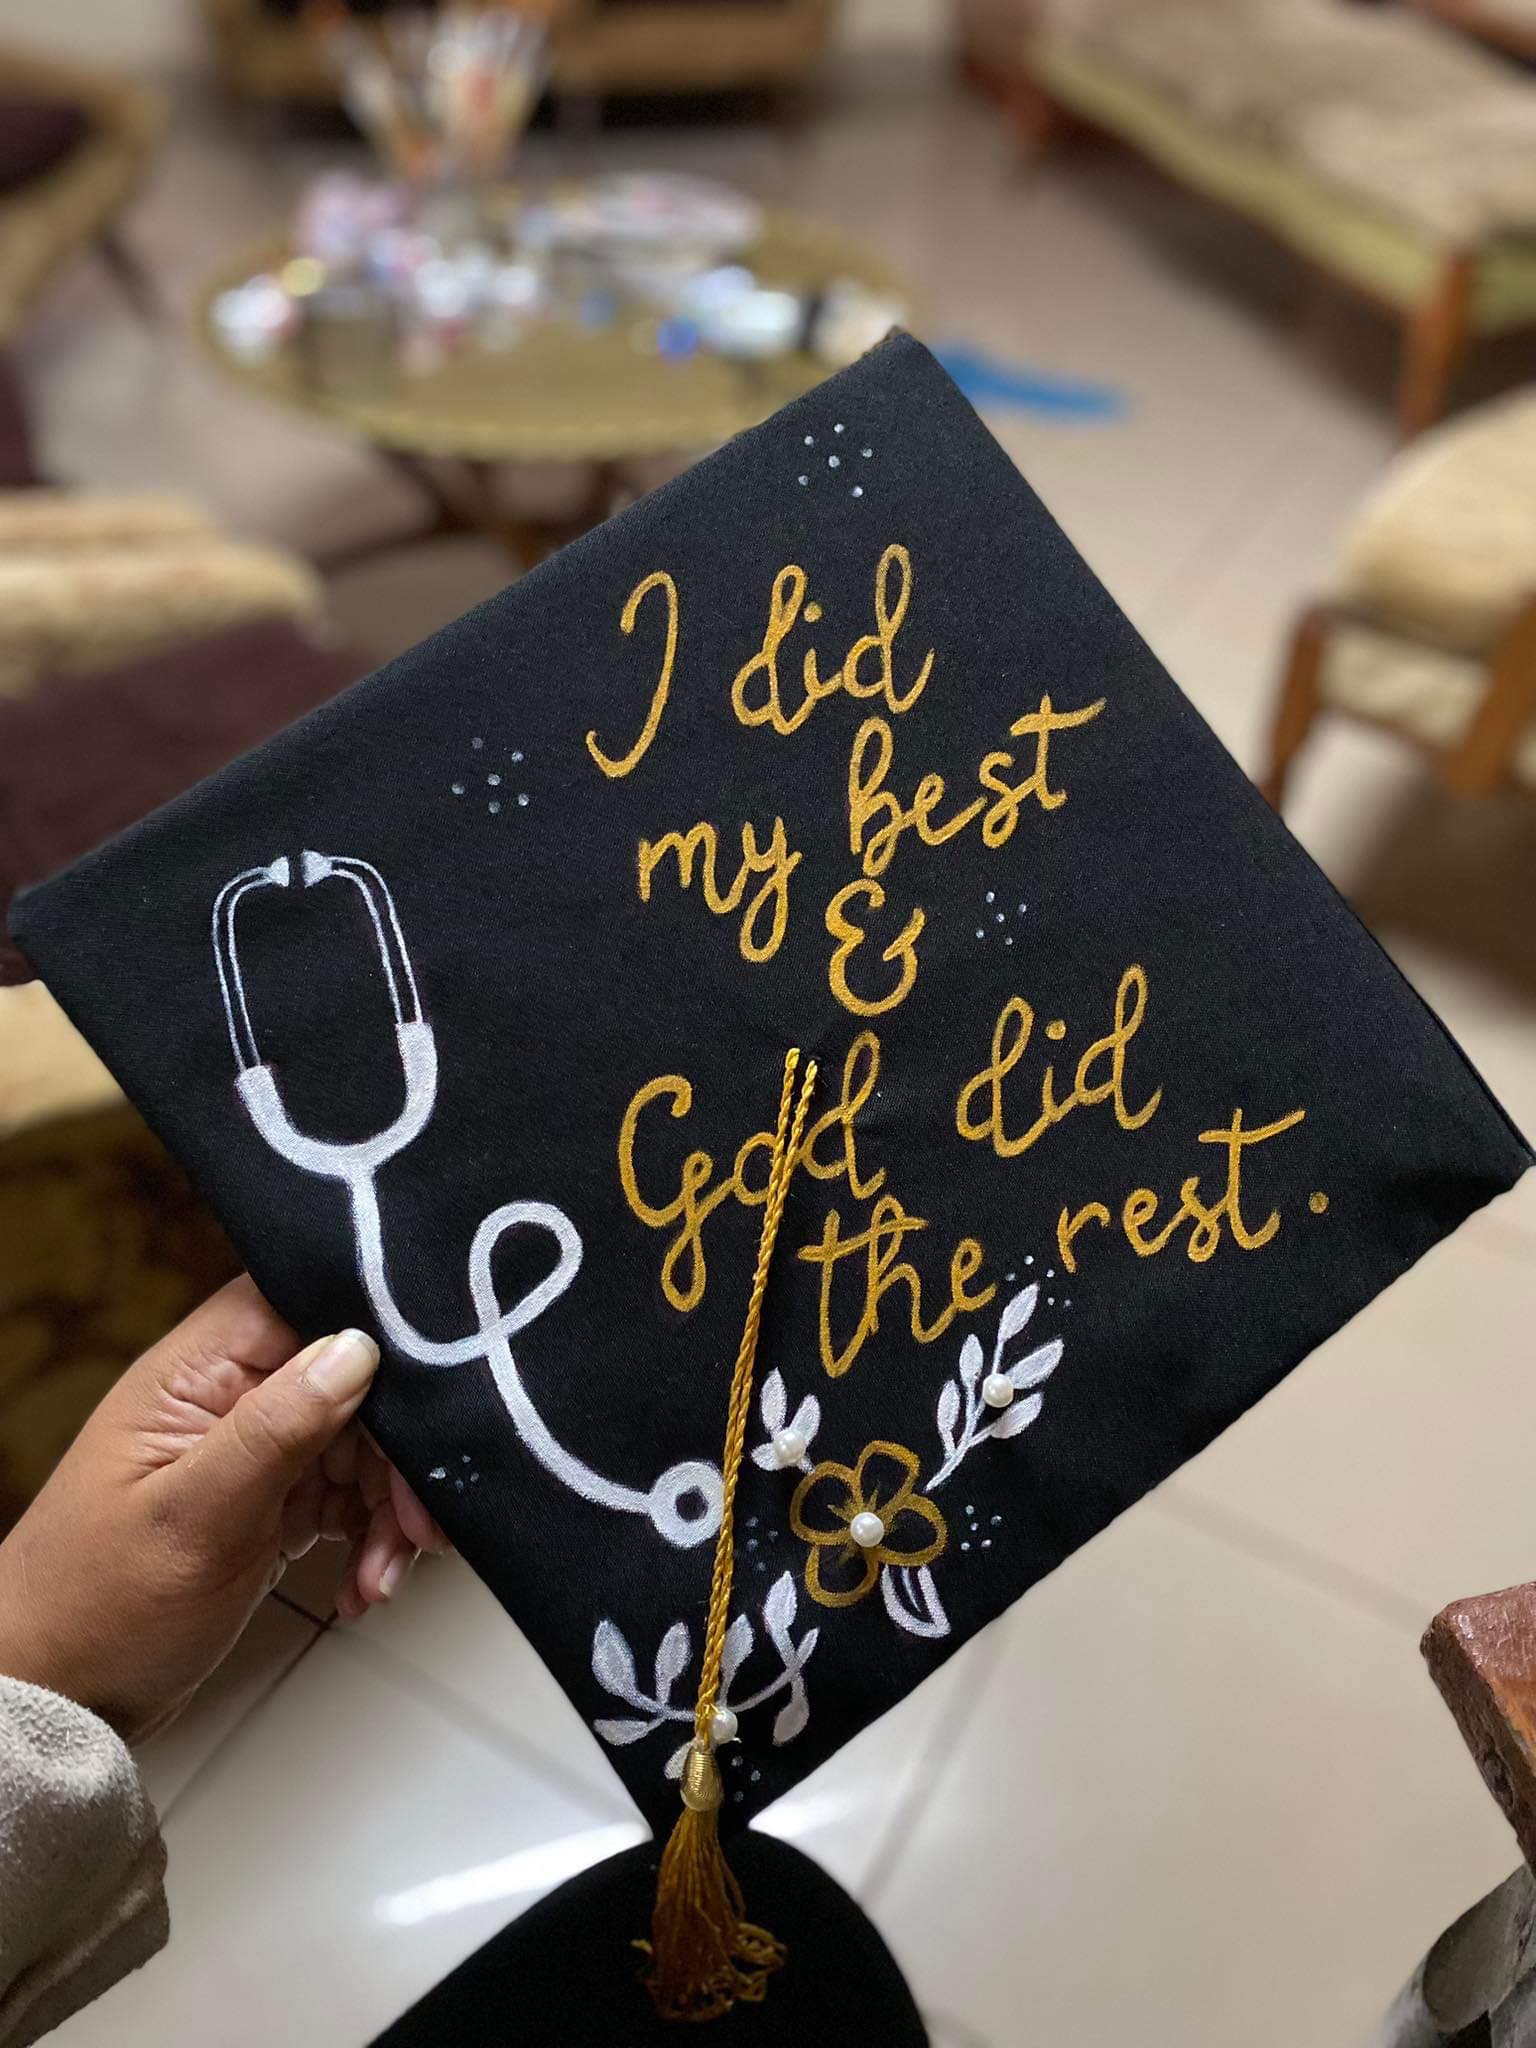 I did
my best
&
God did
the rest.